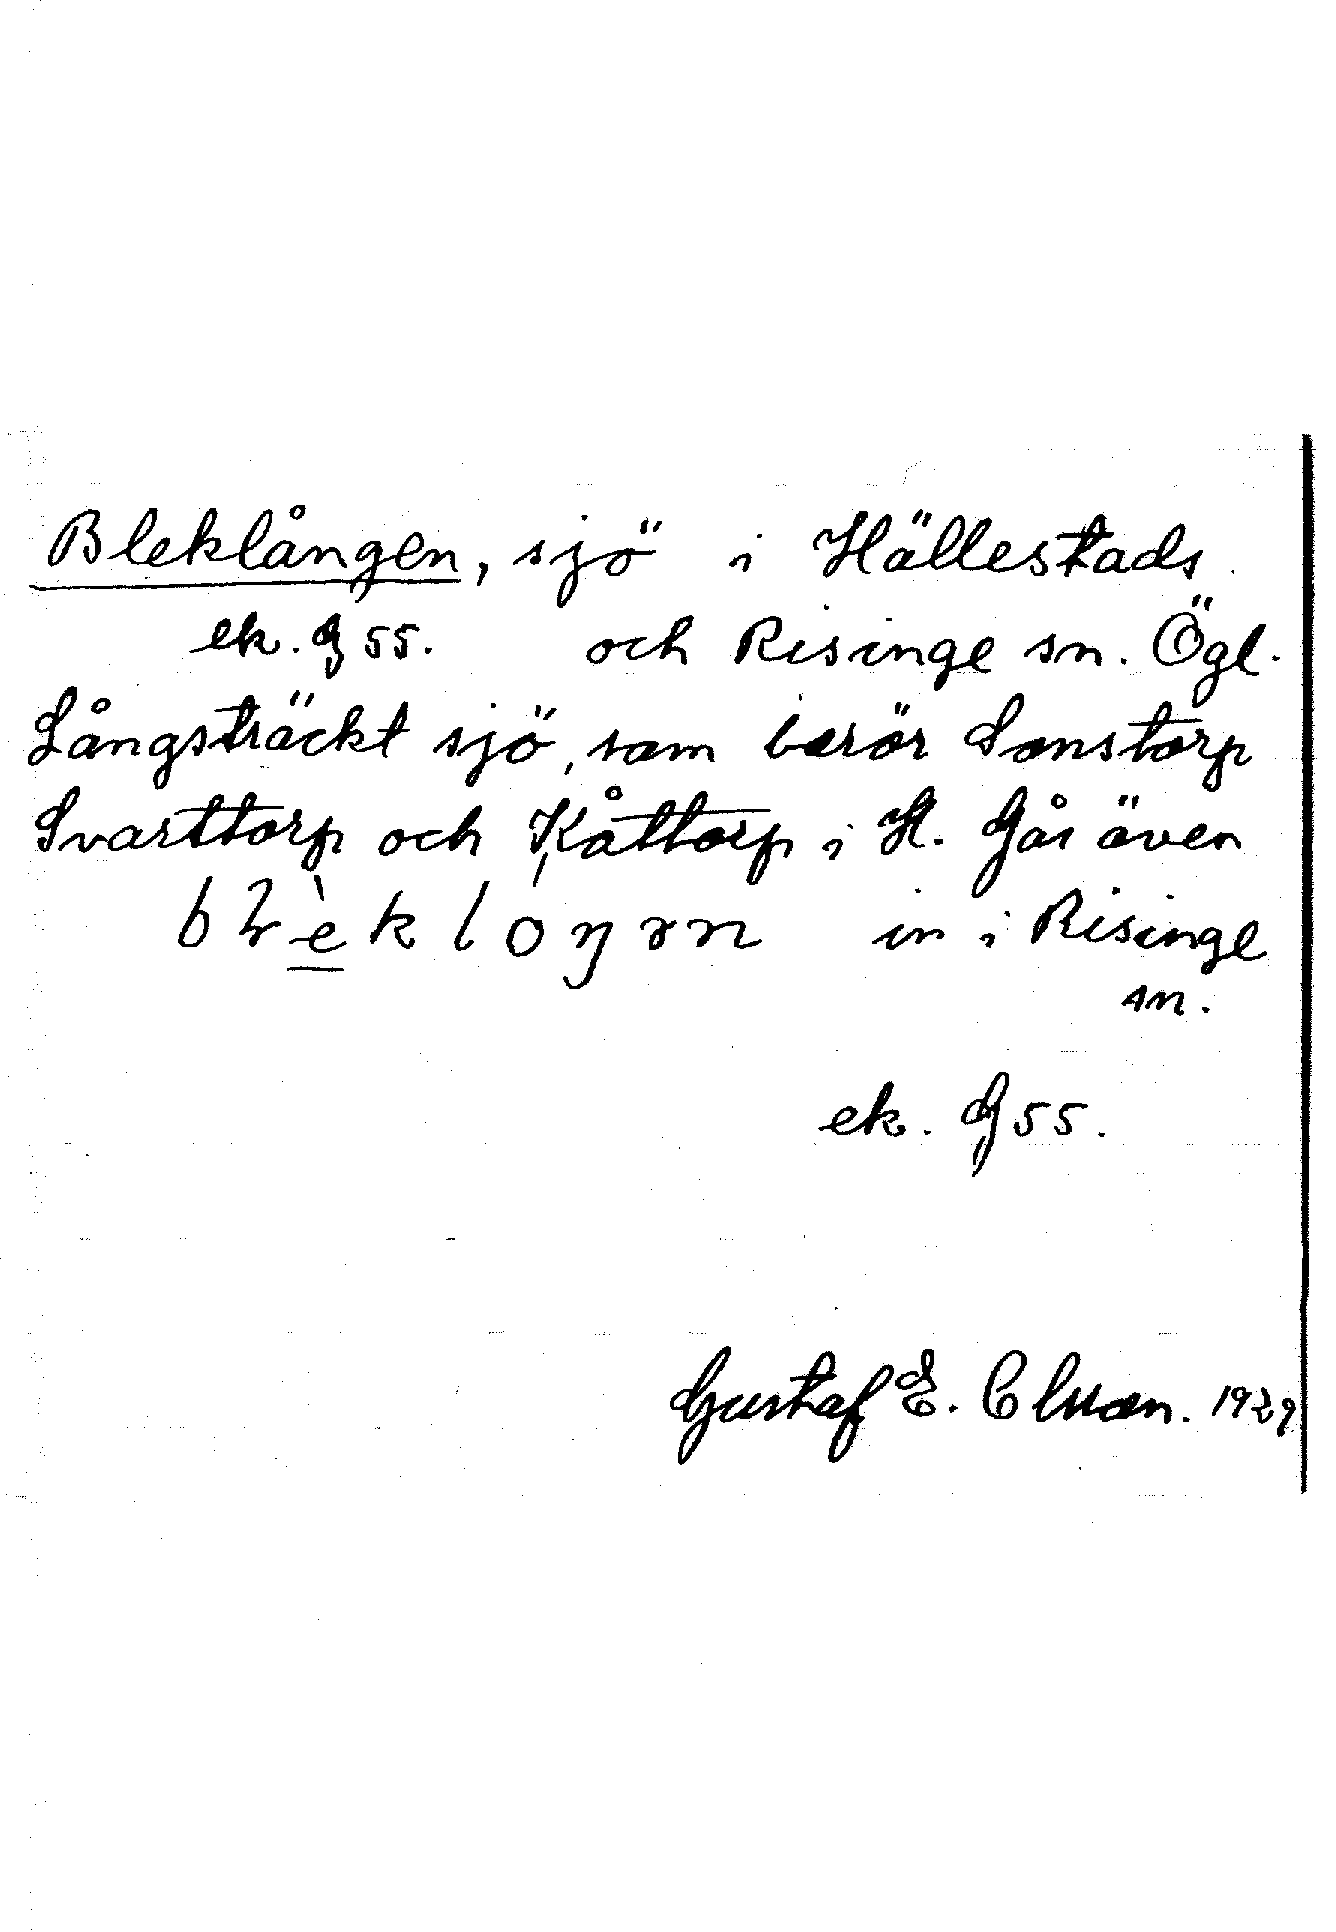 Bleklången, sjö i Hällestads
ek. G 55. och Risinge sn. Ögl.
Långsträckt sjö, som berör Sonstorp
Svarttorp och Kåttorp i H. Går även
in i Risinge
sn.
ek. G 55.
Gustaf E. 1929